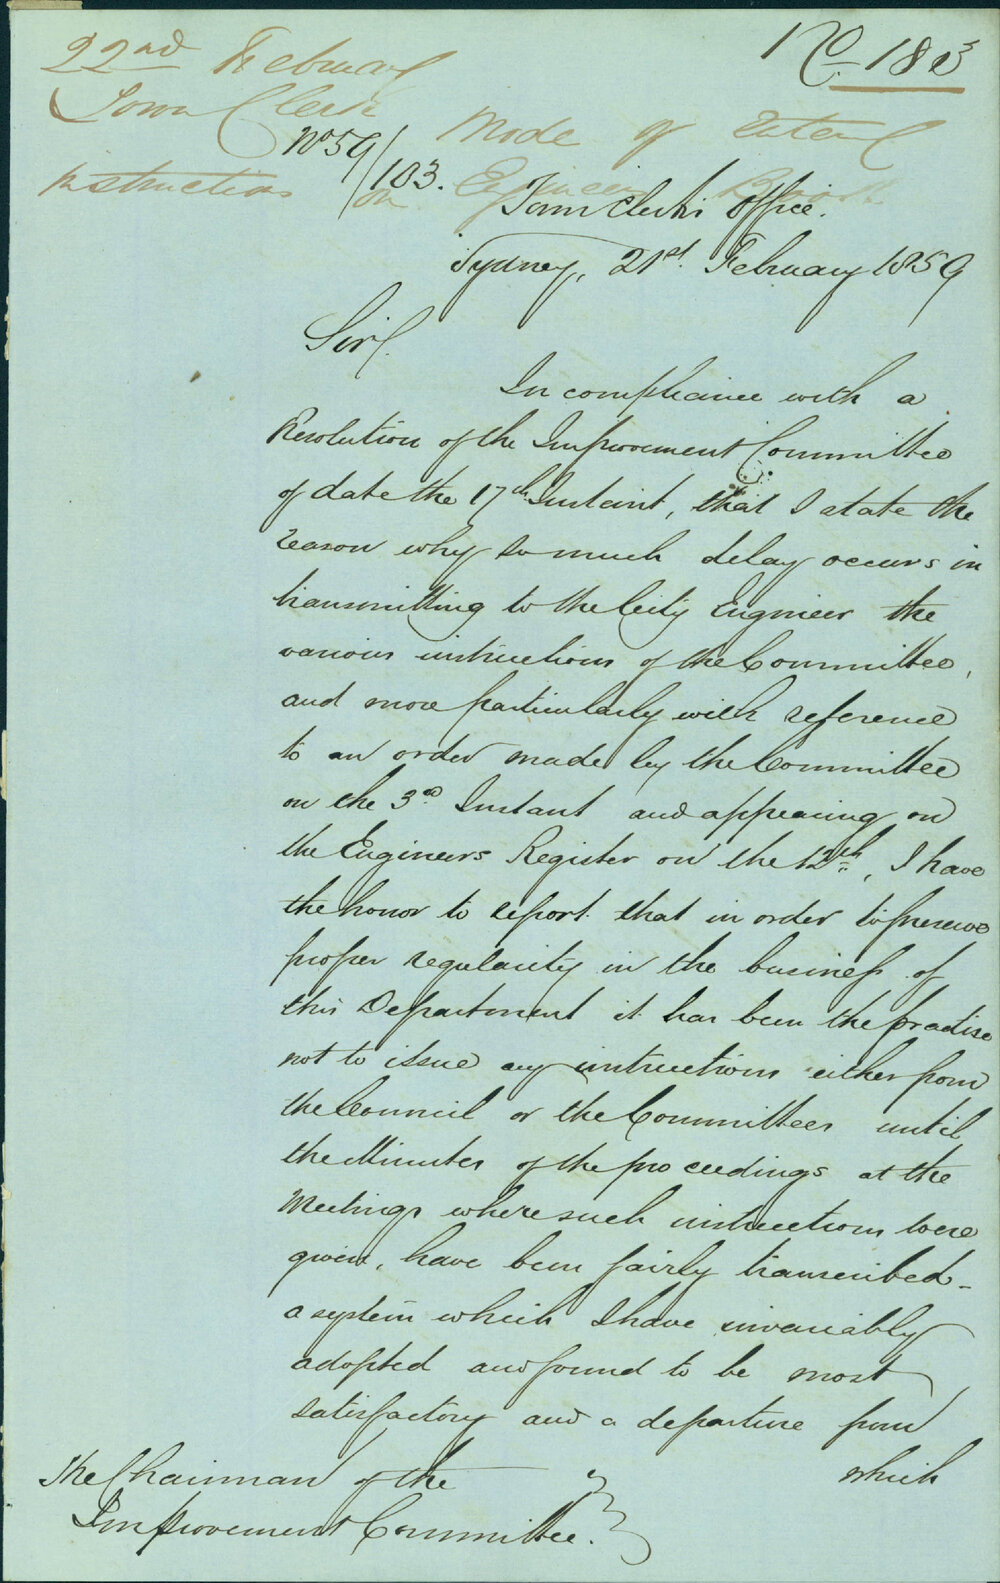 No 183
22nd February
Town Clerk
Mode of
instructions on Engineers
No 59/103.
Town Clerk's Office.
Sydney, 21st. February 1859
Sir/.
In compliance with a
Resolution of the Improvement Committee
of date the 17th Instant, that I state the
reason why so much delay occurs in
transmitting to the City Engineer the
various instructions of the Committee,
and more particularly with reference
to an order made by the Committee
on the 3rd Instant and appearing on
the Engineers Register on the 12th, I have
the honor to report that in order to preserve
proper regularity in the business of
this Department it has been the practise
not to issue any instructions either from
the Council or the Committees until
the Minutes of the proceedings at the
Meetings where such instructions were
given, have been fairly transcribed -
a system which I have invariably
adopted and found to be most
satisfactory and a departure from
which
The Chairman of the
Improvement Committee.